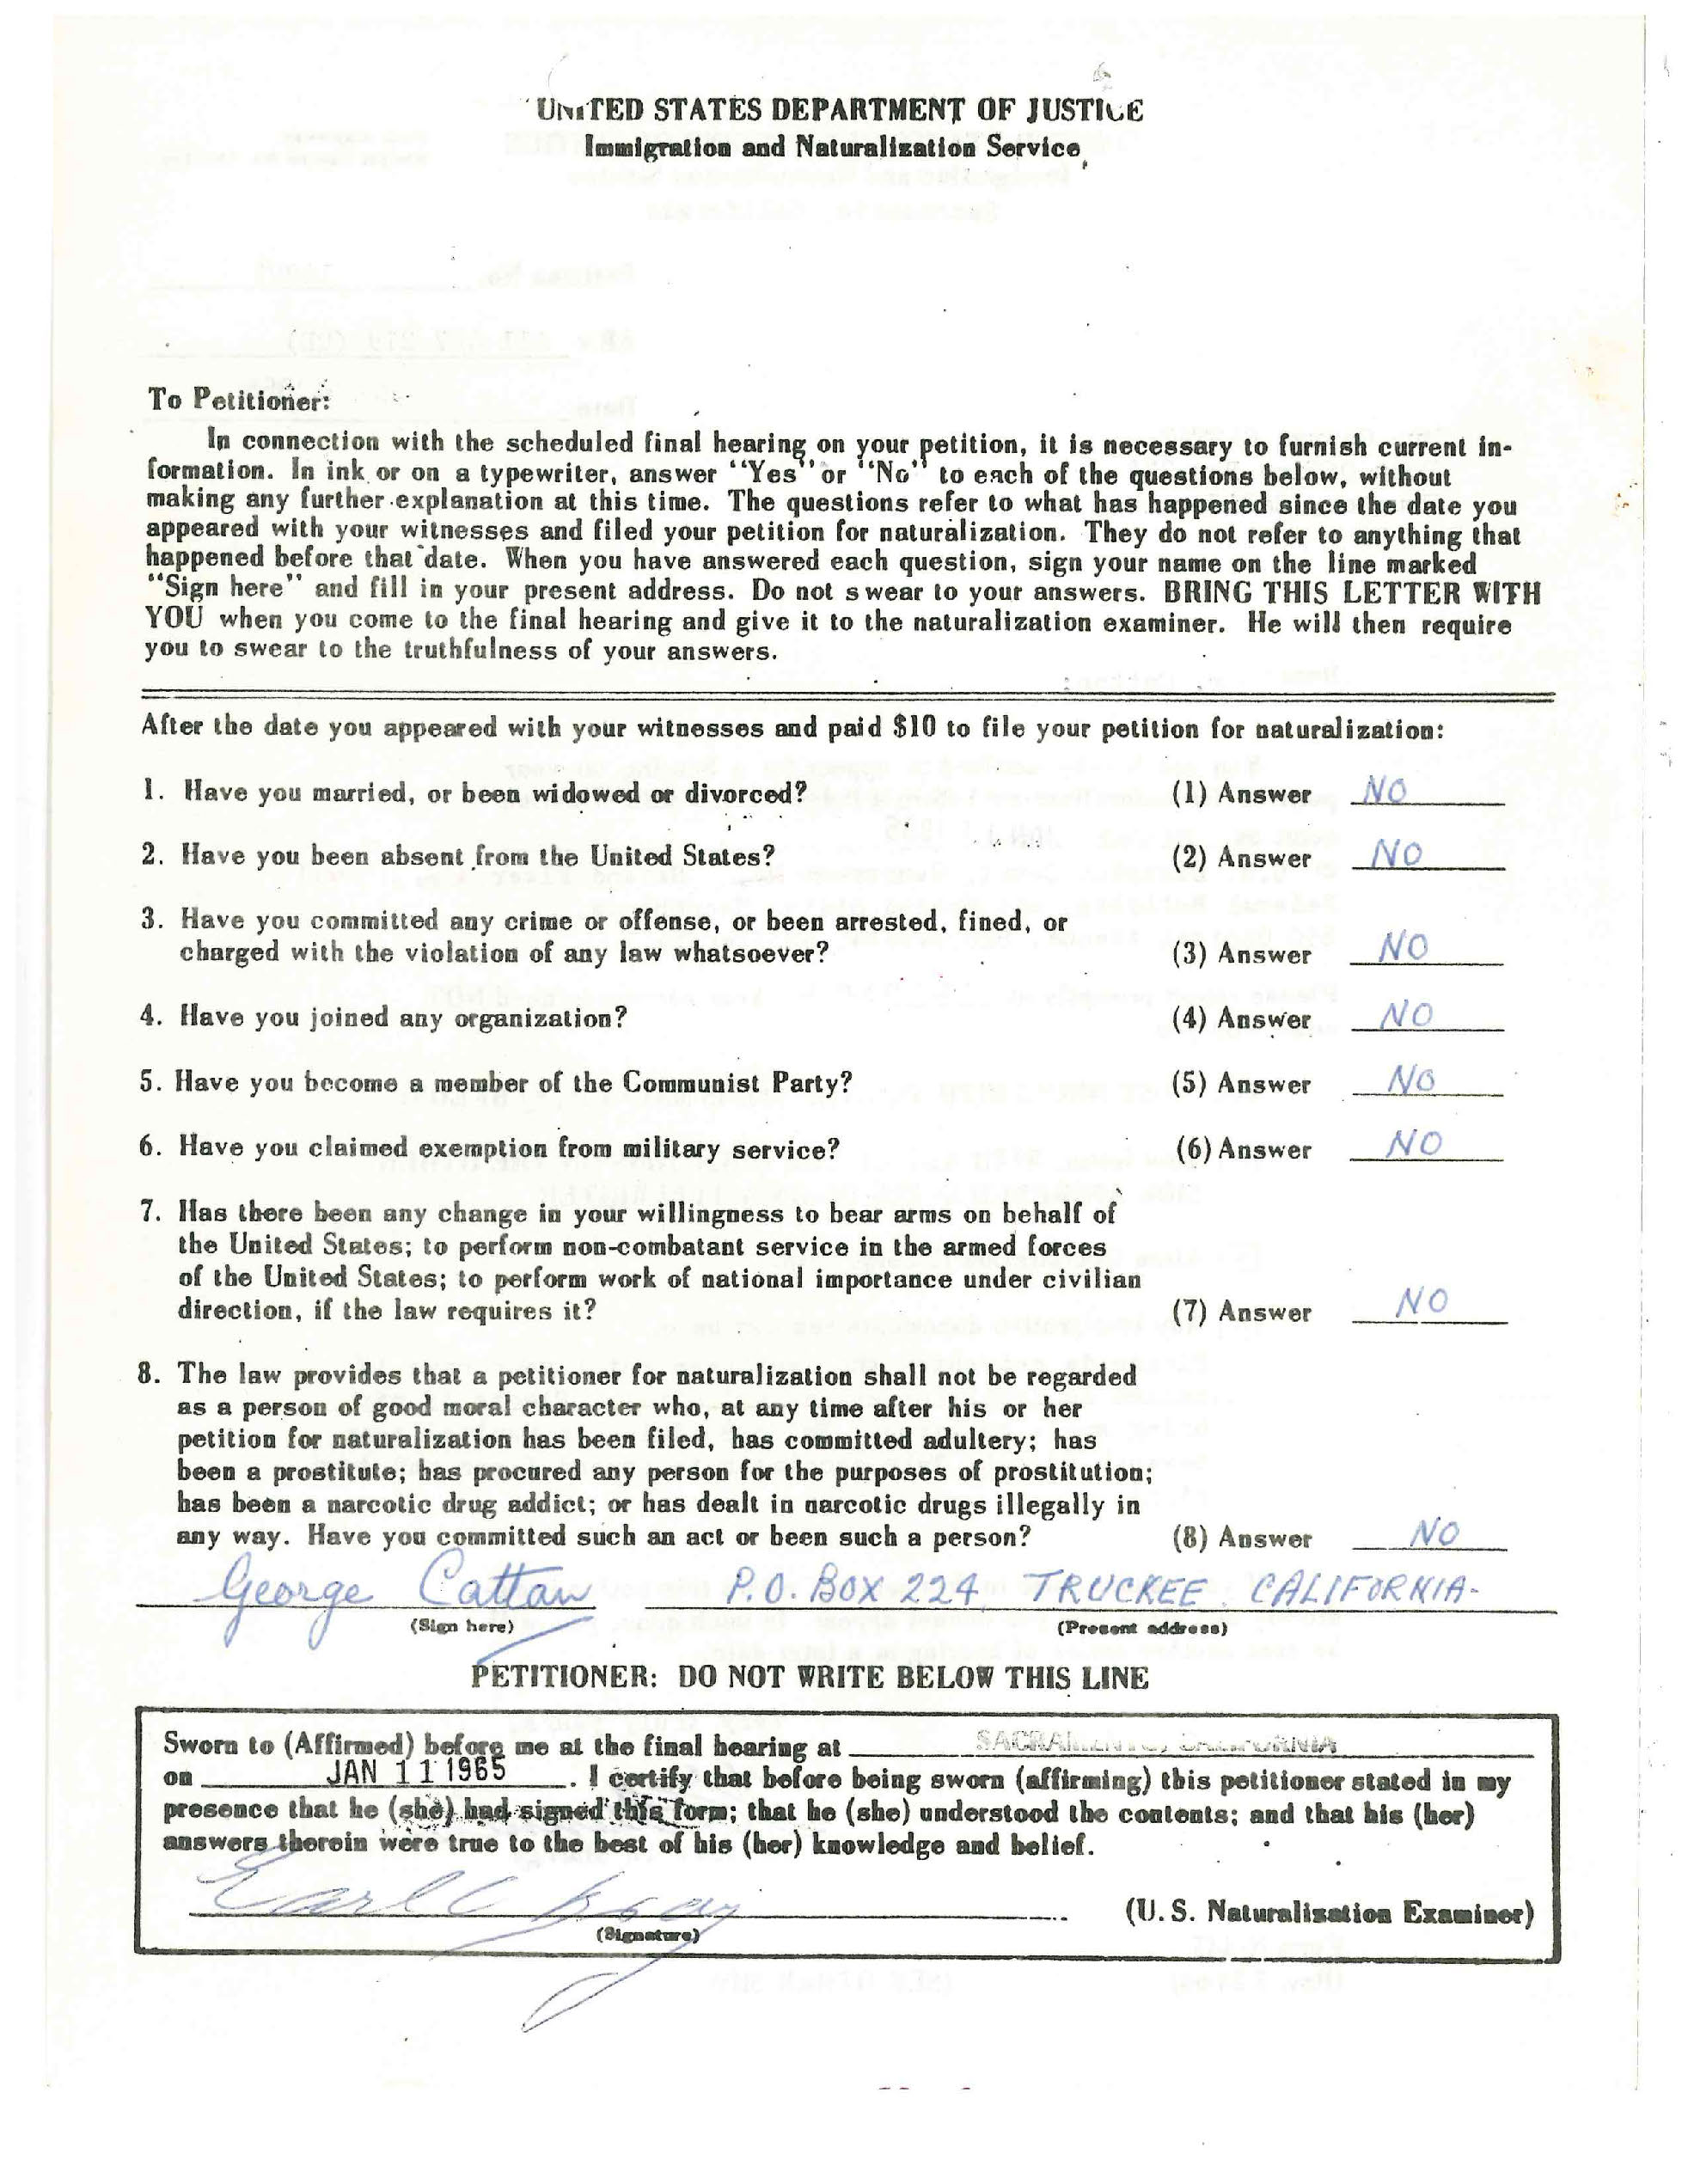 UNITED STATES DEPARTMENT OF JUSTICE
Immigration and Naturalization Service
To Petitioner:
In connection with the scheduled final hearing on your petition, it is necessary to furnish current in-
formation. In ink or on a typewriter, answer "Yes" or "No" to each of the questions below, without
making any further explanation at this time. The questions refer to what has happened since the date you
appeared with your witnesses and filed your petition for naturalization. They do not refer to anything that
happened before that date. When you have answered each question, sign your name on the line marked
"Sign here" and fill in your present address. Do not swear to your answers. BRING THIS LETTER WITH
YOU when you come to the final hearing and give it to the naturalization examiner. He will then require
you to swear to the truthfulness of your answers.
After the date you appeared with your witnesses and paid $10 to file your petition for naturalization:
1. Have you married, or been widowed or divorced? (1) Answer NO
2. Have you been absent from the United States? (2) Answer NO
3. Have you committed any crime or offense, or been arrested, fined, or
charged with the violation of any law whatsoever? (3) Answer NO
4. Have you joined any organization? (4) Answer NO
5. Have you become a member of the Communist Party? (5) Answer NO
6. Have you claimed exemption from military service? (6) Answer NO
7. Has there been any change in your willingness to bear arms on behalf of
the United States; to perform non-combatant service in the armed forces
of the United States; to perform work of national importance under civilian
direction, if the law requires it? (7) Answer NO
8. The law provides that a petitioner for naturalization shall not be regarded
as a person of good moral character who, at any time after his or her
petition for naturalization has been filed, has committed adultery; has
been a prostitute; has procured any person for the purposes of prostitution;
has been a narcotic drug addict; or has dealt in narcotic drugs illegally in
any way. Have you committed such an act or been such a person? (8) Answer NO
George Cattan P.O. BOX 224 TRUCKEE CALIFORNIA-
(Sign here) (Present address)
PETITIONER: DO NOT WRITE BELOW THIS LINE
Sworn to (Affirmed) before me at the final hearing at SACRAMENTO, CALIFORNIA
on JAN 11 1965. I certify that before being sworn (affirming) this petitioner stated in my
presence that he (she) had signed this form; that he (she) understood the contents; and that his (her)
answers therein were true to the best of his (her) knowledge and belief.
Earl C
(U. S. Naturalization Examiner)
(Signature)